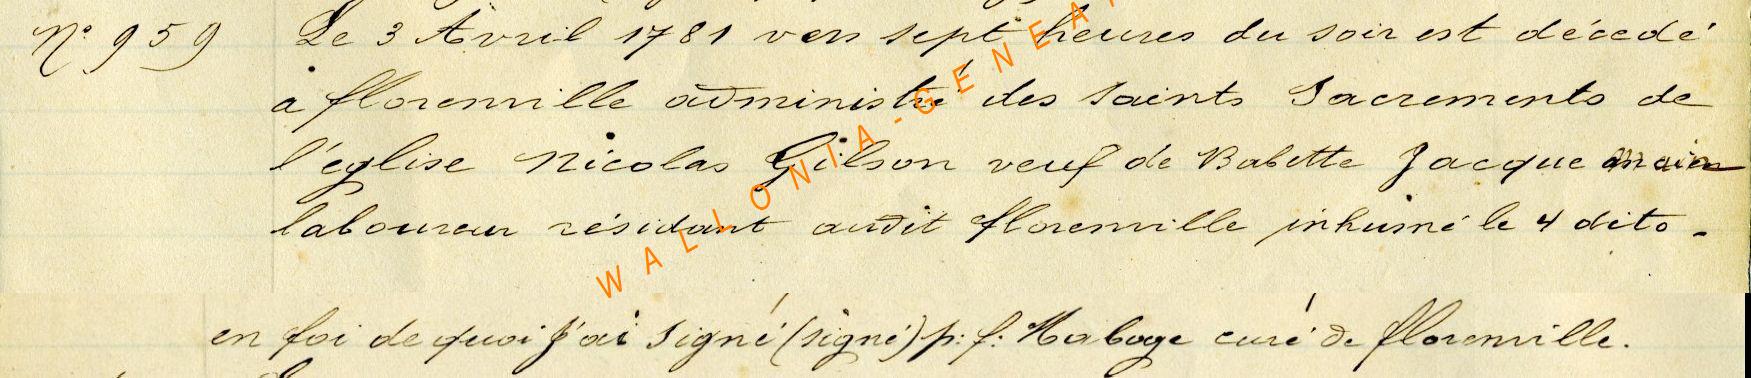 N° 959 Le 3 Avril 1781 vers sept heures du soir est décedé
a florenville administré des saints Sacrements de
l'église Nicolas Gilson veuf de Babette Jacquemain
laboureur résidant audit florenville inhumé le 4 dito.
en foi de quoi j'ai signé (signé) p: f: Habaye curé de florenville.
WALLONIA-GENEA